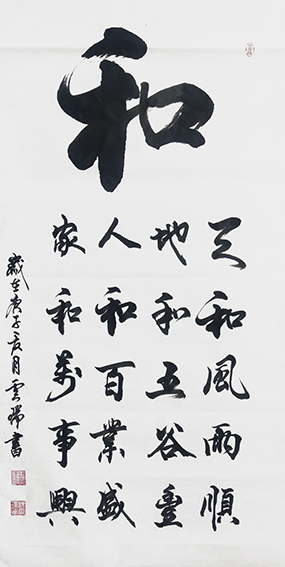 和
天和風雨順
地和五谷豐
人和百業盛
家和萬事興
歲在庚子亥月雲瑞書